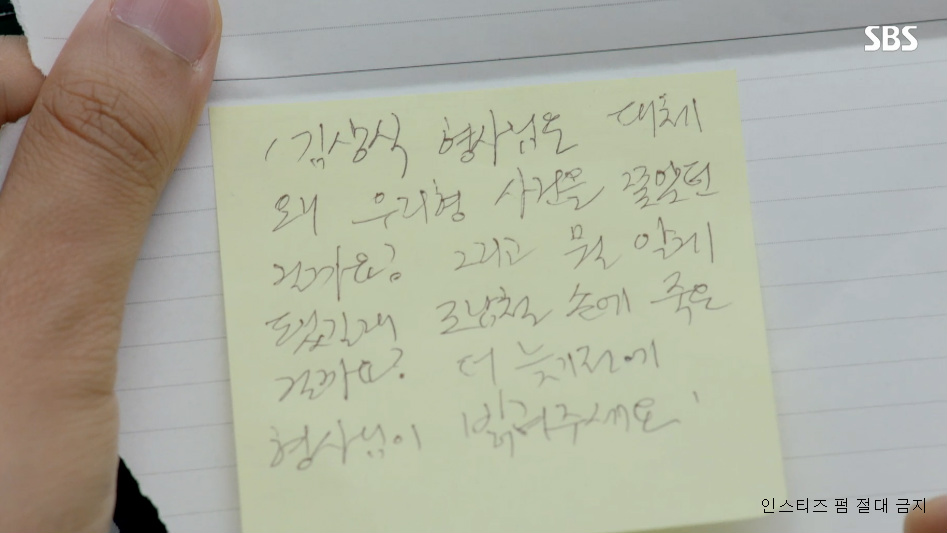 SBS
'김상식 형사님은 대체
왜 우리형 사건을 쫓았던
걸까요? 그리고 뭘 알게
됐길래 조남철 손에 죽은
걸까요? 더 늦기전에
형사님이 밝혀주세요'
인스티즈 펌 절대 금지